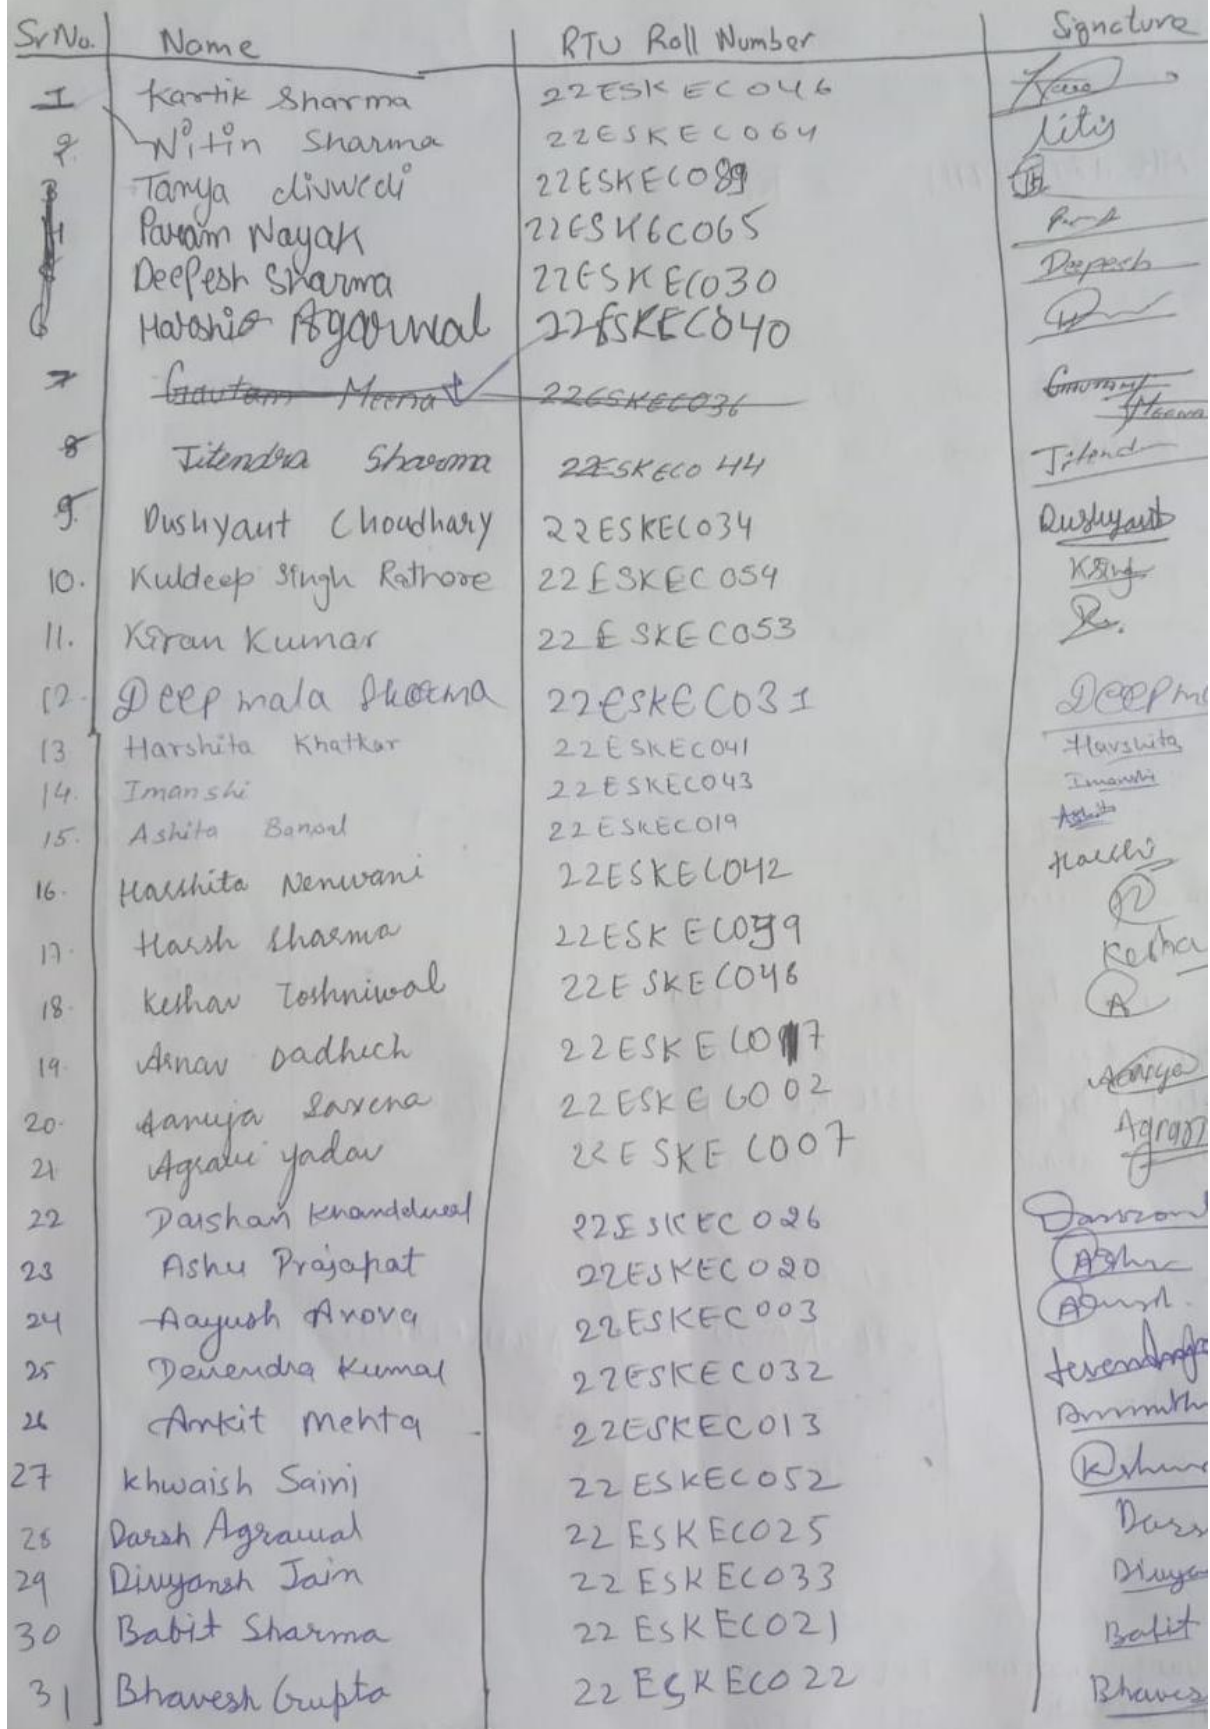 Sr No. Name RTU Roll Number Signature
1 Kartik Sharma 22ESKEC046
2. Nitin Sharma 22ESKEC064
3 Tanya divwedi 22ESKEC089
4 Param Nayak 22ESKEC065
5 Deepesh Sharma 22ESKEC030 Deepesh
6 Agarwal 22ESKEC040
7 Gautam Meena 22ESKEC036 Meena
8 Jitendra Sharma 22ESKEC044 Jitend
9. Dushyant Choudhary 22ESKEC034 Dushyant
10. Kuldeep Singh Rathore 22ESKEC054 KSing
11. Kiran Kumar 22ESKEC053
12. Deepmala Sharma 22ESKEC031 Deepma
13 Harshita Khatkar 22ESKEC041 Harshita
14. Imanshi 22ESKEC043 Imanshi
15. Ashita Bansal 22ESKEC019 Ashita
16. Harshita Nenwani 22ESKEC042 Harshi
17. Harsh Sharma 22ESKEC0
18. Keshav Toshniwal 22ESKEC048 Kesha
19. Arnav Dadhech 22ESKEC017 A
20. Aanuja Saxena 22ESKEC002
21 Agrani Yadav 22ESKEC007
22 Darshan Khandelwal 22ESKEC026
23 Ashu Prajapat 22ESKEC020 Ashu
24 Aayush Arora 22ESKEC003
25 Devendra Kumar 22ESKEC032
26 Ankit Mehta 22ESKEC013
27 Khwaish Saini 22ESKEC052
28 Darsh Agrawal 22ESKEC025 Dars
29 Divyansh Jain 22ESKEC033 Divya
30 Babit Sharma 22ESKEC021 Babit
31 Bhavesh Gupta 22ESKEC022 Bhaves